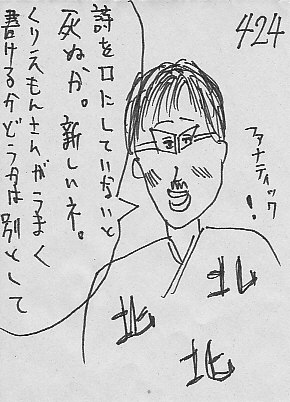 424
詩を口にしていないと
死ぬか。新しいネ。
くりえもんさんがうまく
書けるかどうかは別として
ファナティック!
北
北
北